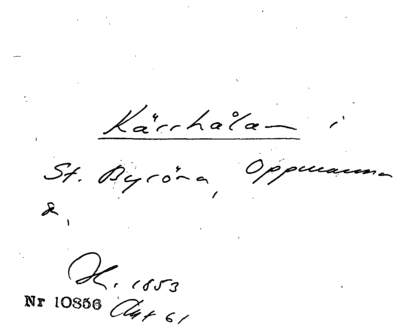 Kärrhålan i
St. Byröra, Oppmanna
d,
H. 1853
Nr 10856 Aut 61